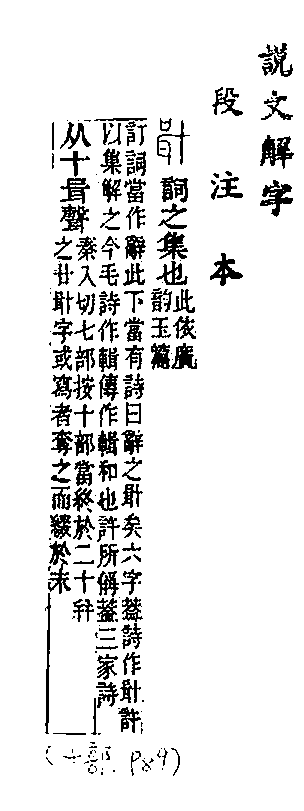 説文解字
段注本
詞之集也此依廣
韵玉篇
訂詞當作辭此下當有詩曰辭之計矣六字葢詩作計許
以集解之今毛詩作輯傳作輯和也許所偁葢三家詩
从十咠聲秦入切七部按十部當終於二十幷
之廿計字或寫者奪之而綴於末
(十部 P89)